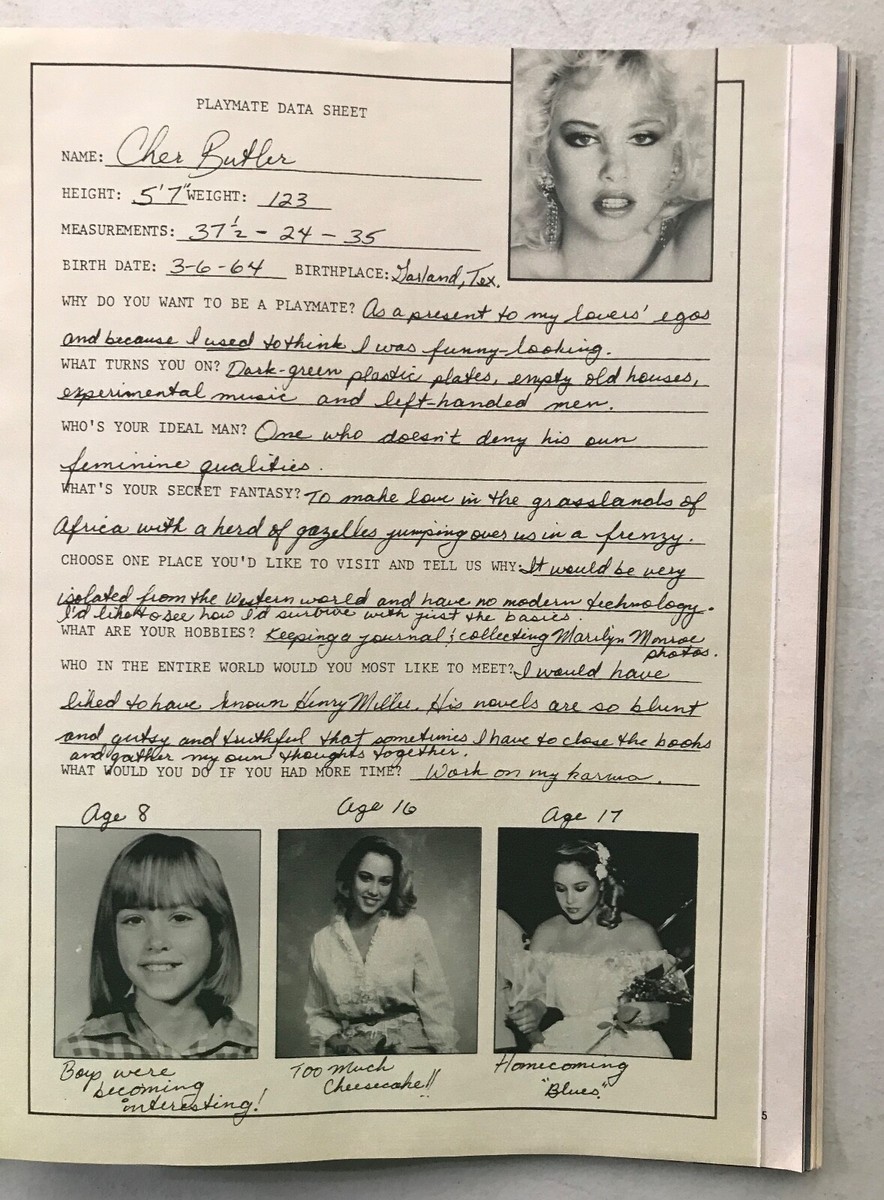 PLAYMATE DATA SHEET
NAME: Cher Butler
HEIGHT: 5'7" WEIGHT: 123
MEASUREMENTS: 37½ - 24 - 35
BIRTH DATE: 3-6-64 BIRTHPLACE: Garland, Tex.
WHY DO YOU WANT TO BE A PLAYMATE? As a present to my lovers' egos
and because I used to think I was funny-looking.
WHAT TURNS YOU ON? Dark-green plastic plates, empty old houses,
experimental music and left-handed men.
WHO'S YOUR IDEAL MAN? One who doesn't deny his own
feminine qualities.
WHAT'S YOUR SECRET FANTASY? To make love in the grasslands of
Africa with a herd of gazelles jumping over us in a frenzy.
CHOOSE ONE PLACE YOU'D LIKE TO VISIT AND TELL US WHY: It would be very
isolated from the Western world and have no modern technology.
I'd like to see how I'd survive with just the basics.
WHAT ARE YOUR HOBBIES? Keeping a journal & collecting Marilyn Monroe
photos.
WHO IN THE ENTIRE WORLD WOULD YOU MOST LIKE TO MEET? I would have
liked to have known Henry Miller. His novels are so blunt
and gutsy and truthful that sometimes I have to close the books
and gather my own thoughts together.
WHAT WOULD YOU DO IF YOU HAD MORE TIME? Work on my karma.
Age 8
Age 16
Age 17
Boys were
becoming
interesting!
Too Much
Cheesecake!!
Homecoming
"Blues."
5